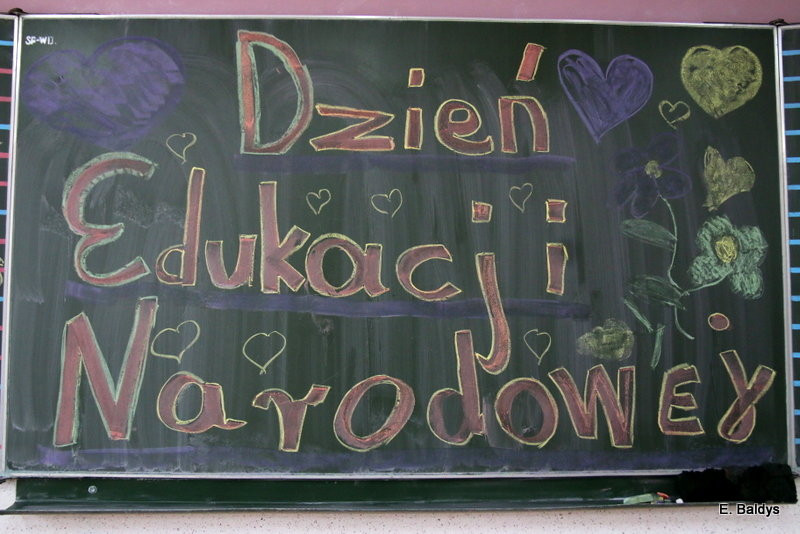 SP-WD.
Dzień
Edukacji
Narodowej
E. Baldys